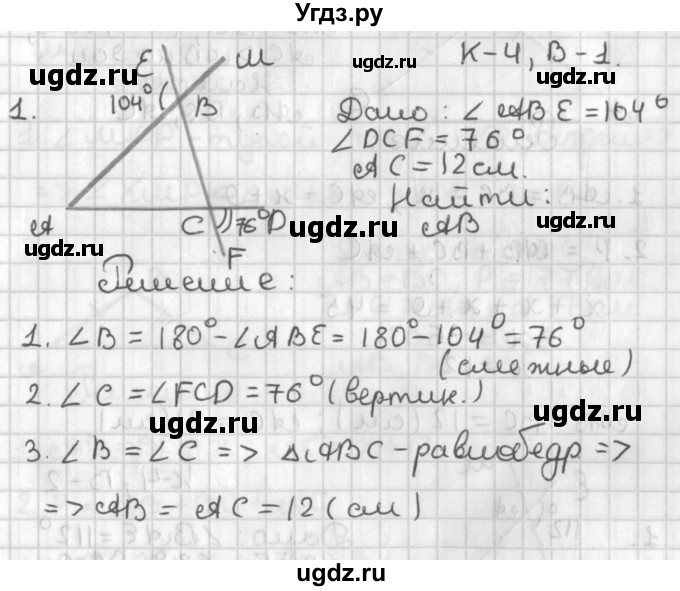 Угдз.ру
К-4, В-1.
1.
E M
104° B
A C 76° D
F
Дано: ∠ABE = 104°
∠DCF = 76°
AC = 12 см.
Найти:
AB
Решение:
1. ∠B = 180° - ∠ABE = 180° - 104° = 76°
(смежные)
2. ∠C = ∠FCD = 76° (вертик.)
3. ∠B = ∠C => △ABC - равнобедр =>
=> AB = AC = 12 (см)
ugdz.ru
ugdz.ru
ugdz.ru
ugdz.ru
ugdz.ru
ugdz.ru
ugdz.ru
ugdz.ru
ugdz.ru
ugdz.ru
ugdz.ru
ugdz.ru